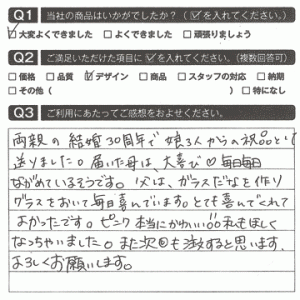 Q1 当社の商品はいかがでしたか？（☑を入れてください。）
☑大変よくできました □よくできました □頑張りましょう
Q2 ご満足いただけた項目に☑を入れてください。（複数回答可）
□価格 □品質 ☑デザイン □商品 □スタッフの対応 □納期
□その他（ ）□特になし
Q3 ご利用にあたってご感想をおよせください。
両親の結婚30周年で娘3人からの祝品とし
送りました。届いた母は、大喜び♡毎日毎日
ながめているそうです。父は、ガラスだなを作り
グラスをおいて毎日喜んでいます。とても喜んでくれて
よかったです。ピンク本当にかわいい!!私もほしく
なっちゃいました。また次回も注文すると思います。
よろしくお願いします。